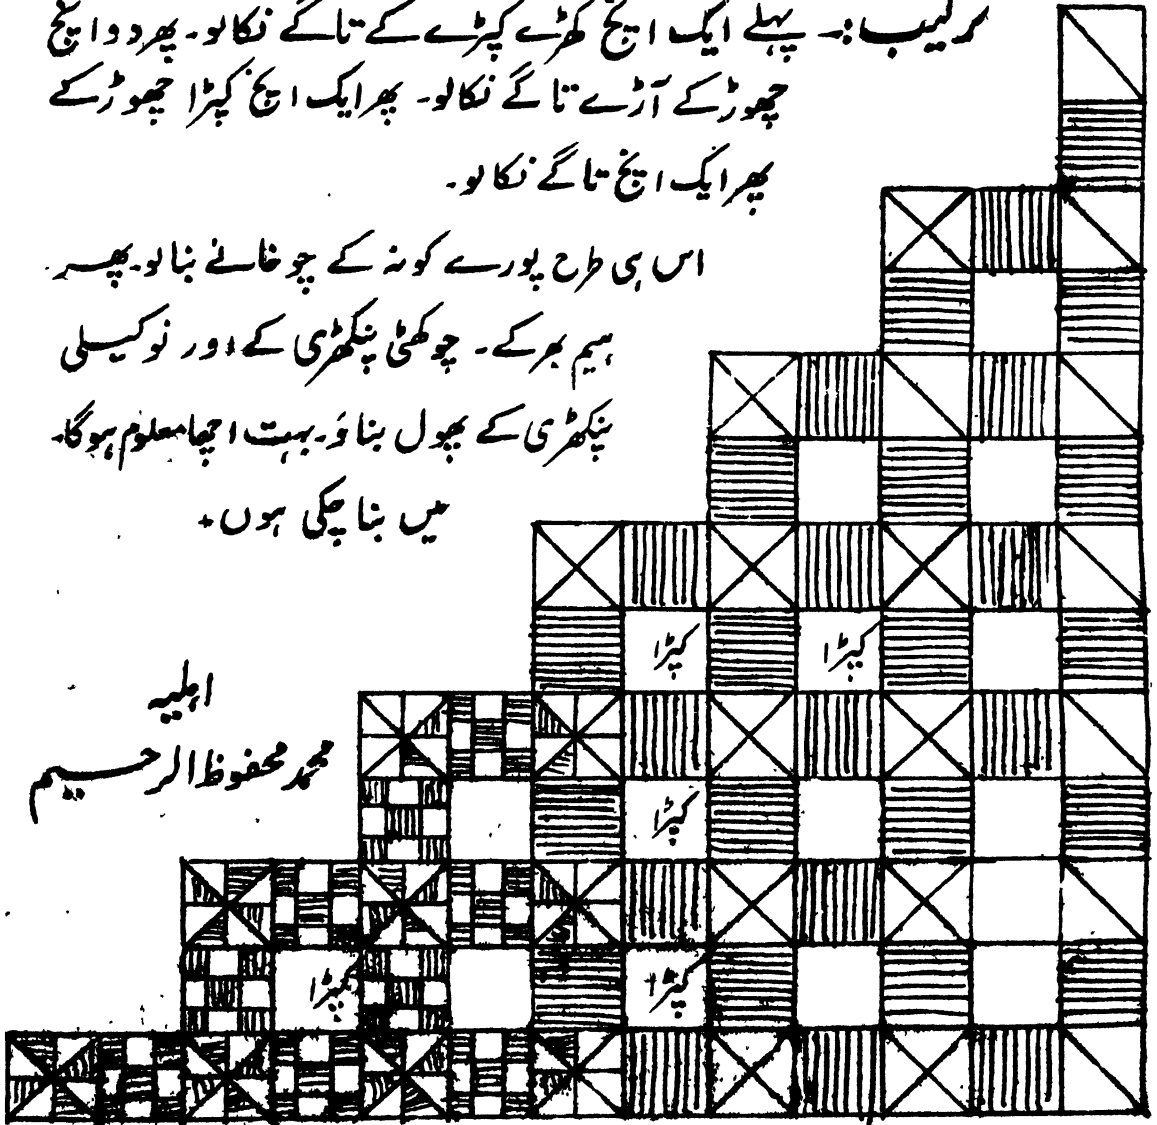 ترکیب:۔ پہلے ایک انچ کھڑے کپڑے کے تاگے نکالو۔ پھر دو انچ
چھوڑ کے آڑے تاگے نکالو۔ پھر ایک انچ کپڑا چھوڑ کے
پھر ایک انچ تاگے نکالو۔
اس ہی طرح پورے کونہ کے چوخانے بنالو۔ پھر
ہیم بھر کے۔ چوکھٹی پنکھڑی کے اور نوکیلی
پنکھڑی کے پھول بناؤ۔ بہت اچھا معلوم ہوگا۔
میں بنا چکی ہوں۔
کپڑا
کپڑا
اہلیہ
محمد محفوظ الرحیم
کپڑا
کپڑا
کپڑا